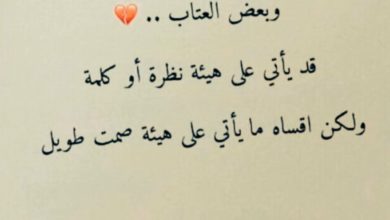 وبعض العتاب .. 💔
قد يأتي على هيئة نظرة أو كلمة
ولكن اقساه ما يأتي على هيئة صمت طويل